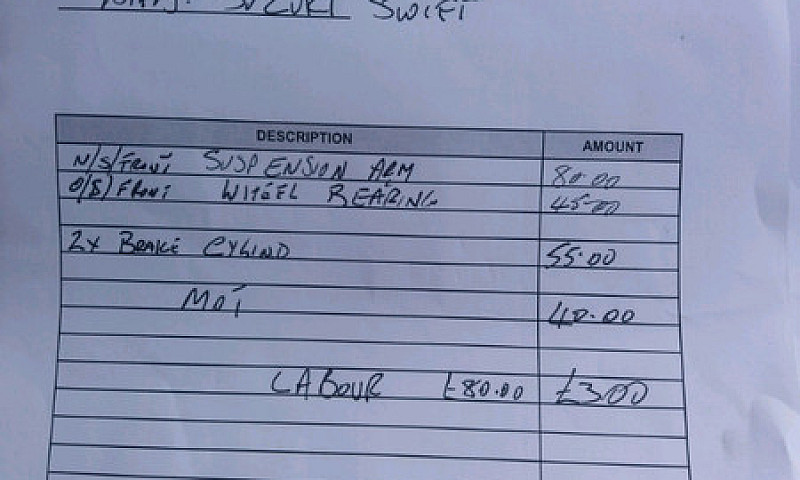 SUZUKI SWIFT
DESCRIPTION AMOUNT
N/S/FRONT SUSPENSION ARM 80.00
O/S/FRONT WHEEL BEARING 45.00
2x BRAKE CYLIND 55.00
MOT 40.00
LABOUR £80.00 £300